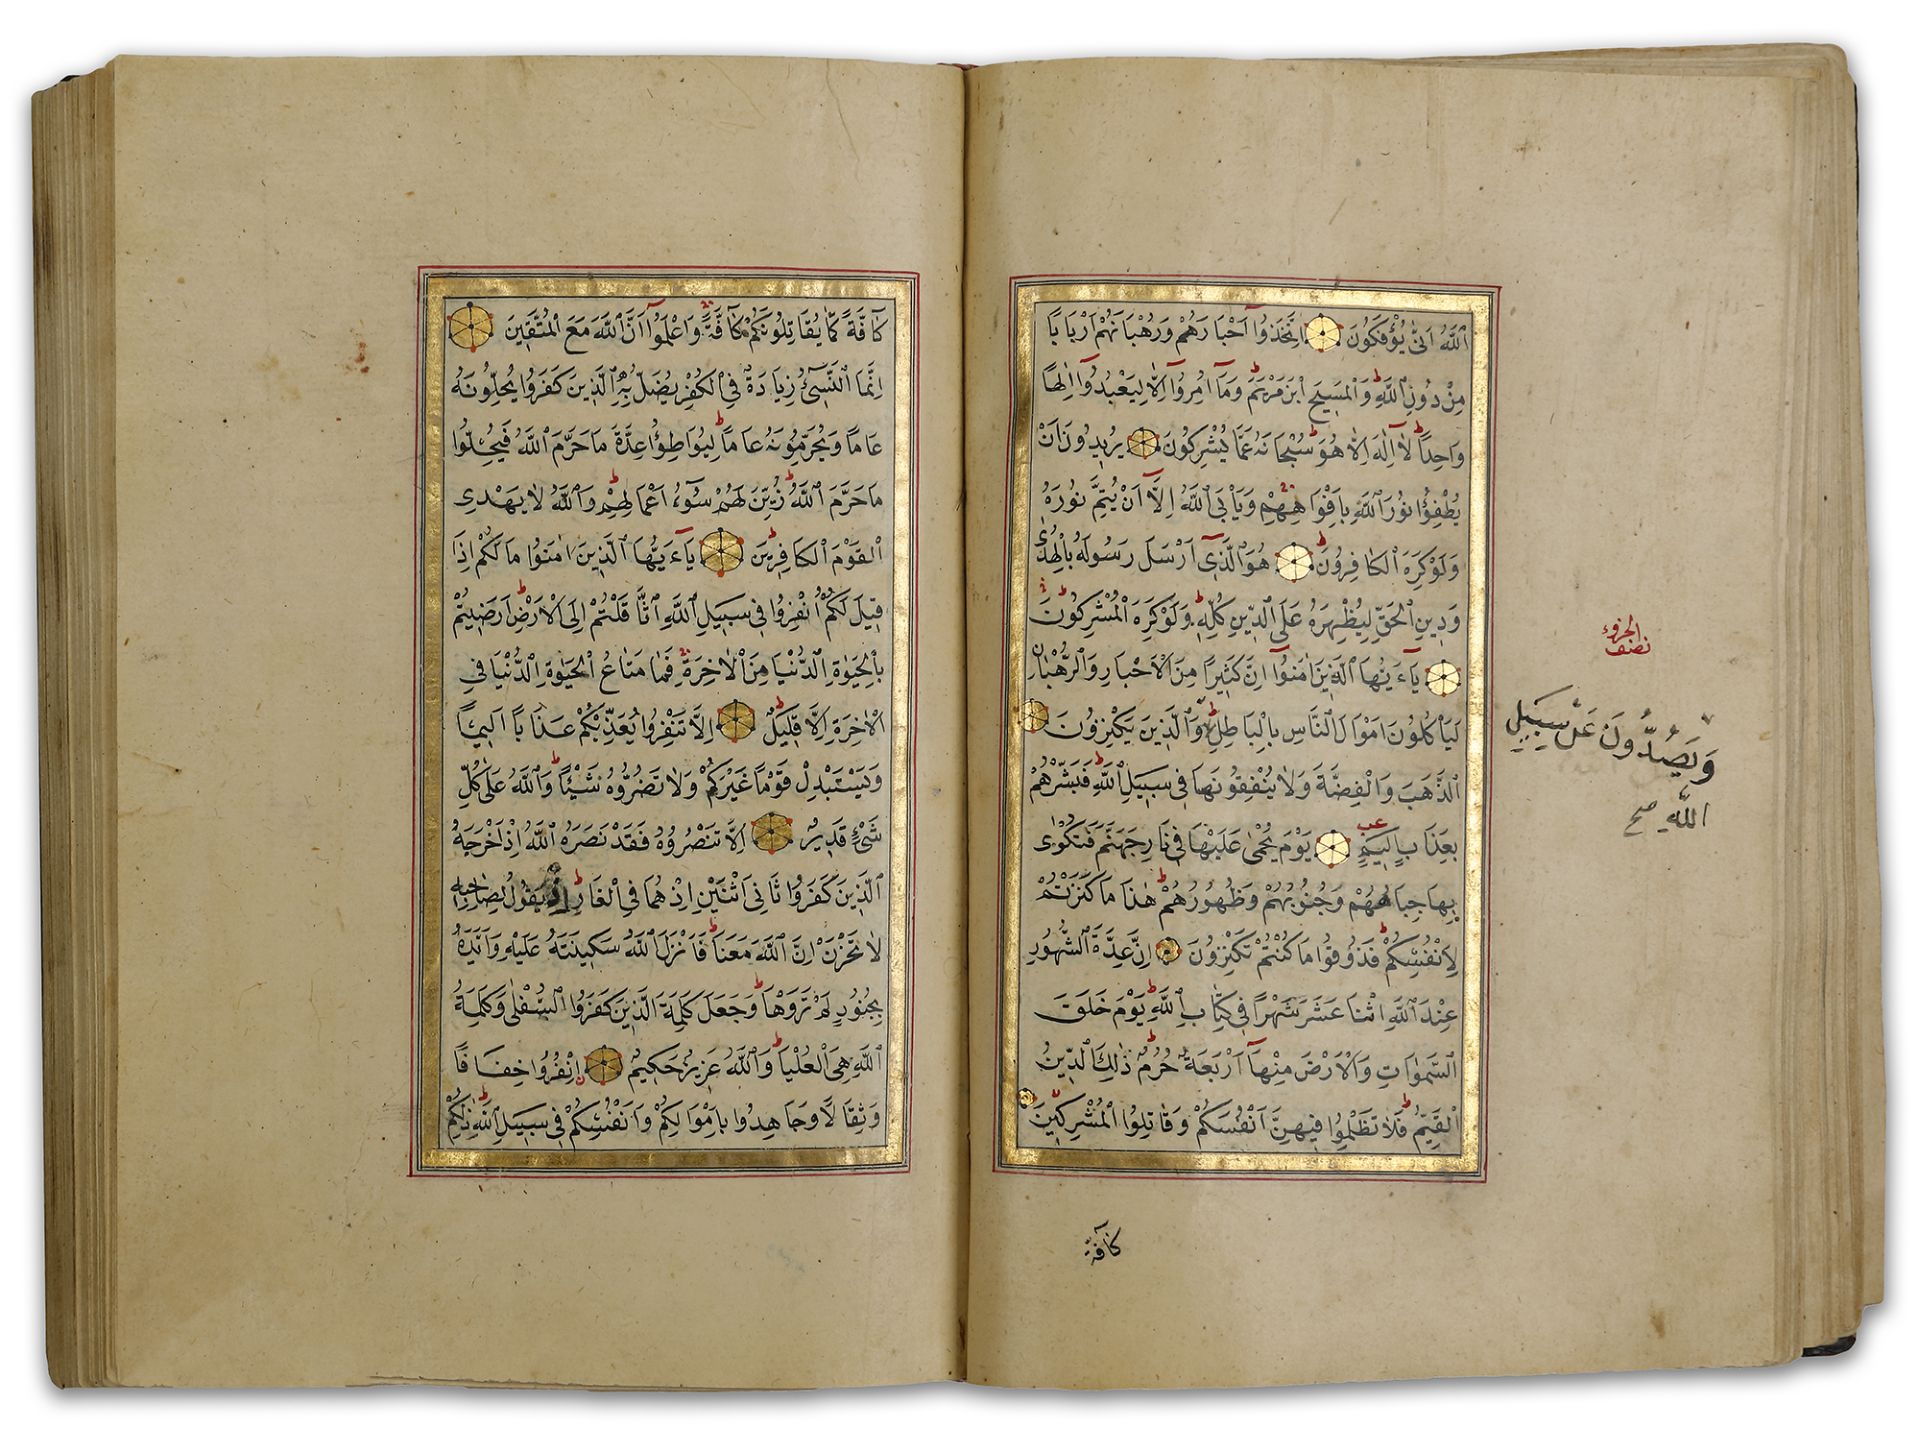 اللّٰهُ اَنّٰى يُؤْفَكُونَ اِتَّخَذُٓوا اَحْبَارَهُمْ وَرُهْبَانَهُمْ اَرْبَابًا
مِنْ دُونِ اللّٰهِ وَالْمَسِيحَ ابْنَ مَرْيَمَ وَمَٓا اُمِرُٓوا اِلَّا لِيَعْبُدُٓوا اِلٰهًا
وَاحِدًا لَٓا اِلٰهَ اِلَّا هُوَ سُبْحَانَهُ عَمَّا يُشْرِكُونَ يُرِيدُونَ اَنْ
يُطْفِؤُا نُورَ اللّٰهِ بِاَفْوَاهِهِمْ وَيَاْبَى اللّٰهُ اِلَّٓا اَنْ يُتِمَّ نُورَهُ
وَلَوْ كَرِهَ الْكَافِرُونَ هُوَ الَّذِٓى اَرْسَلَ رَسُولَهُ بِالْهُدٰى
وَدِينِ الْحَقِّ لِيُظْهِرَهُ عَلَى الدِّينِ كُلِّهِ وَلَوْ كَرِهَ الْمُشْرِكُونَ
يَٓاءَيُّهَا الَّذِينَ اٰمَنُٓوا اِنَّ كَثِيرًا مِنَ الْاَحْبَارِ وَالرُّهْبَانِ
لَيَاْكُلُونَ اَمْوَالَ النَّاسِ بِالْبَاطِلِ وَالَّذِينَ يَكْنِزُونَ
الذَّهَبَ وَالْفِضَّةَ وَلَا يُنْفِقُونَهَا فِى سَبِيلِ اللّٰهِ فَبَشِّرْهُمْ
بِعَذَابٍ اَلِيمٍ يَوْمَ يُحْمٰى عَلَيْهَا فِى نَارِ جَهَنَّمَ فَتُكْوٰى
بِهَا جِبَاهُهُمْ وَجُنُوبُهُمْ وَظُهُورُهُمْ هٰذَا مَا كَنَزْتُمْ
لِاَنْفُسِكُمْ فَذُوقُوا مَا كُنْتُمْ تَكْنِزُونَ اِنَّ عِدَّةَ الشُّهُورِ
عِنْدَ اللّٰهِ اثْنَا عَشَرَ شَهْرًا فِى كِتَابِ اللّٰهِ يَوْمَ خَلَقَ
السَّمٰوَاتِ وَالْاَرْضَ مِنْهَٓا اَرْبَعَةٌ حُرُمٌ ذٰلِكَ الدِّينُ
الْقَيِّمُ فَلَا تَظْلِمُوا فِيهِنَّ اَنْفُسَكُمْ وَقَاتِلُوا الْمُشْرِكِينَ
نصف الجزء
وَيَصُدُّونَ عَنْ سَبِيلِ
اللّٰهِ صح
كَٓافَّةً
كَٓافَّةً كَمَا يُقَاتِلُونَكُمْ كَٓافَّةً وَاعْلَمُٓوا اَنَّ اللّٰهَ مَعَ الْمُتَّقِينَ
اِنَّمَا النَّسِٓىءُ زِيَادَةٌ فِى الْكُفْرِ يُضَلُّ بِهِ الَّذِينَ كَفَرُوا يُحِلُّونَهُ
عَامًا وَيُحَرِّمُونَهُ عَامًا لِيُوَاطِؤُا عِدَّةَ مَا حَرَّمَ اللّٰهُ فَيُحِلُّوا
مَا حَرَّمَ اللّٰهُ زُيِّنَ لَهُمْ سُٓوءُ اَعْمَالِهِمْ وَاللّٰهُ لَا يَهْدِى
الْقَوْمَ الْكَافِرِينَ يَٓاءَيُّهَا الَّذِينَ اٰمَنُوا مَا لَكُمْ اِذَا
قِيلَ لَكُمُ انْفِرُوا فِى سَبِيلِ اللّٰهِ اثَّاقَلْتُمْ اِلَى الْاَرْضِ اَرَضِيتُمْ
بِالْحَيٰوةِ الدُّنْيَا مِنَ الْاٰخِرَةِ فَمَا مَتَاعُ الْحَيٰوةِ الدُّنْيَا فِى
الْاٰخِرَةِ اِلَّا قَلِيلٌ اِلَّا تَنْفِرُوا يُعَذِّبْكُمْ عَذَابًا اَلِيمًا
وَيَسْتَبْدِلْ قَوْمًا غَيْرَكُمْ وَلَا تَضُرُّوهُ شَيْئًا وَاللّٰهُ عَلٰى كُلِّ
شَىْءٍ قَدِيرٌ اِلَّا تَنْصُرُوهُ فَقَدْ نَصَرَهُ اللّٰهُ اِذْ اَخْرَجَهُ
الَّذِينَ كَفَرُوا ثَانِىَ اثْنَيْنِ اِذْ هُمَا فِى الْغَارِ اِذْ يَقُولُ لِصَاحِبِهِ
لَا تَحْزَنْ اِنَّ اللّٰهَ مَعَنَا فَاَنْزَلَ اللّٰهُ سَكِينَتَهُ عَلَيْهِ وَاَيَّدَهُ
بِجُنُودٍ لَمْ تَرَوْهَا وَجَعَلَ كَلِمَةَ الَّذِينَ كَفَرُوا السُّفْلٰى وَكَلِمَةُ
اللّٰهِ هِىَ الْعُلْيَا وَاللّٰهُ عَزِيزٌ حَكِيمٌ اِنْفِرُوا خِفَافًا
وَثِقَالًا وَجَاهِدُوا بِاَمْوَالِكُمْ وَاَنْفُسِكُمْ فِى سَبِيلِ اللّٰهِ ذٰلِكُمْ